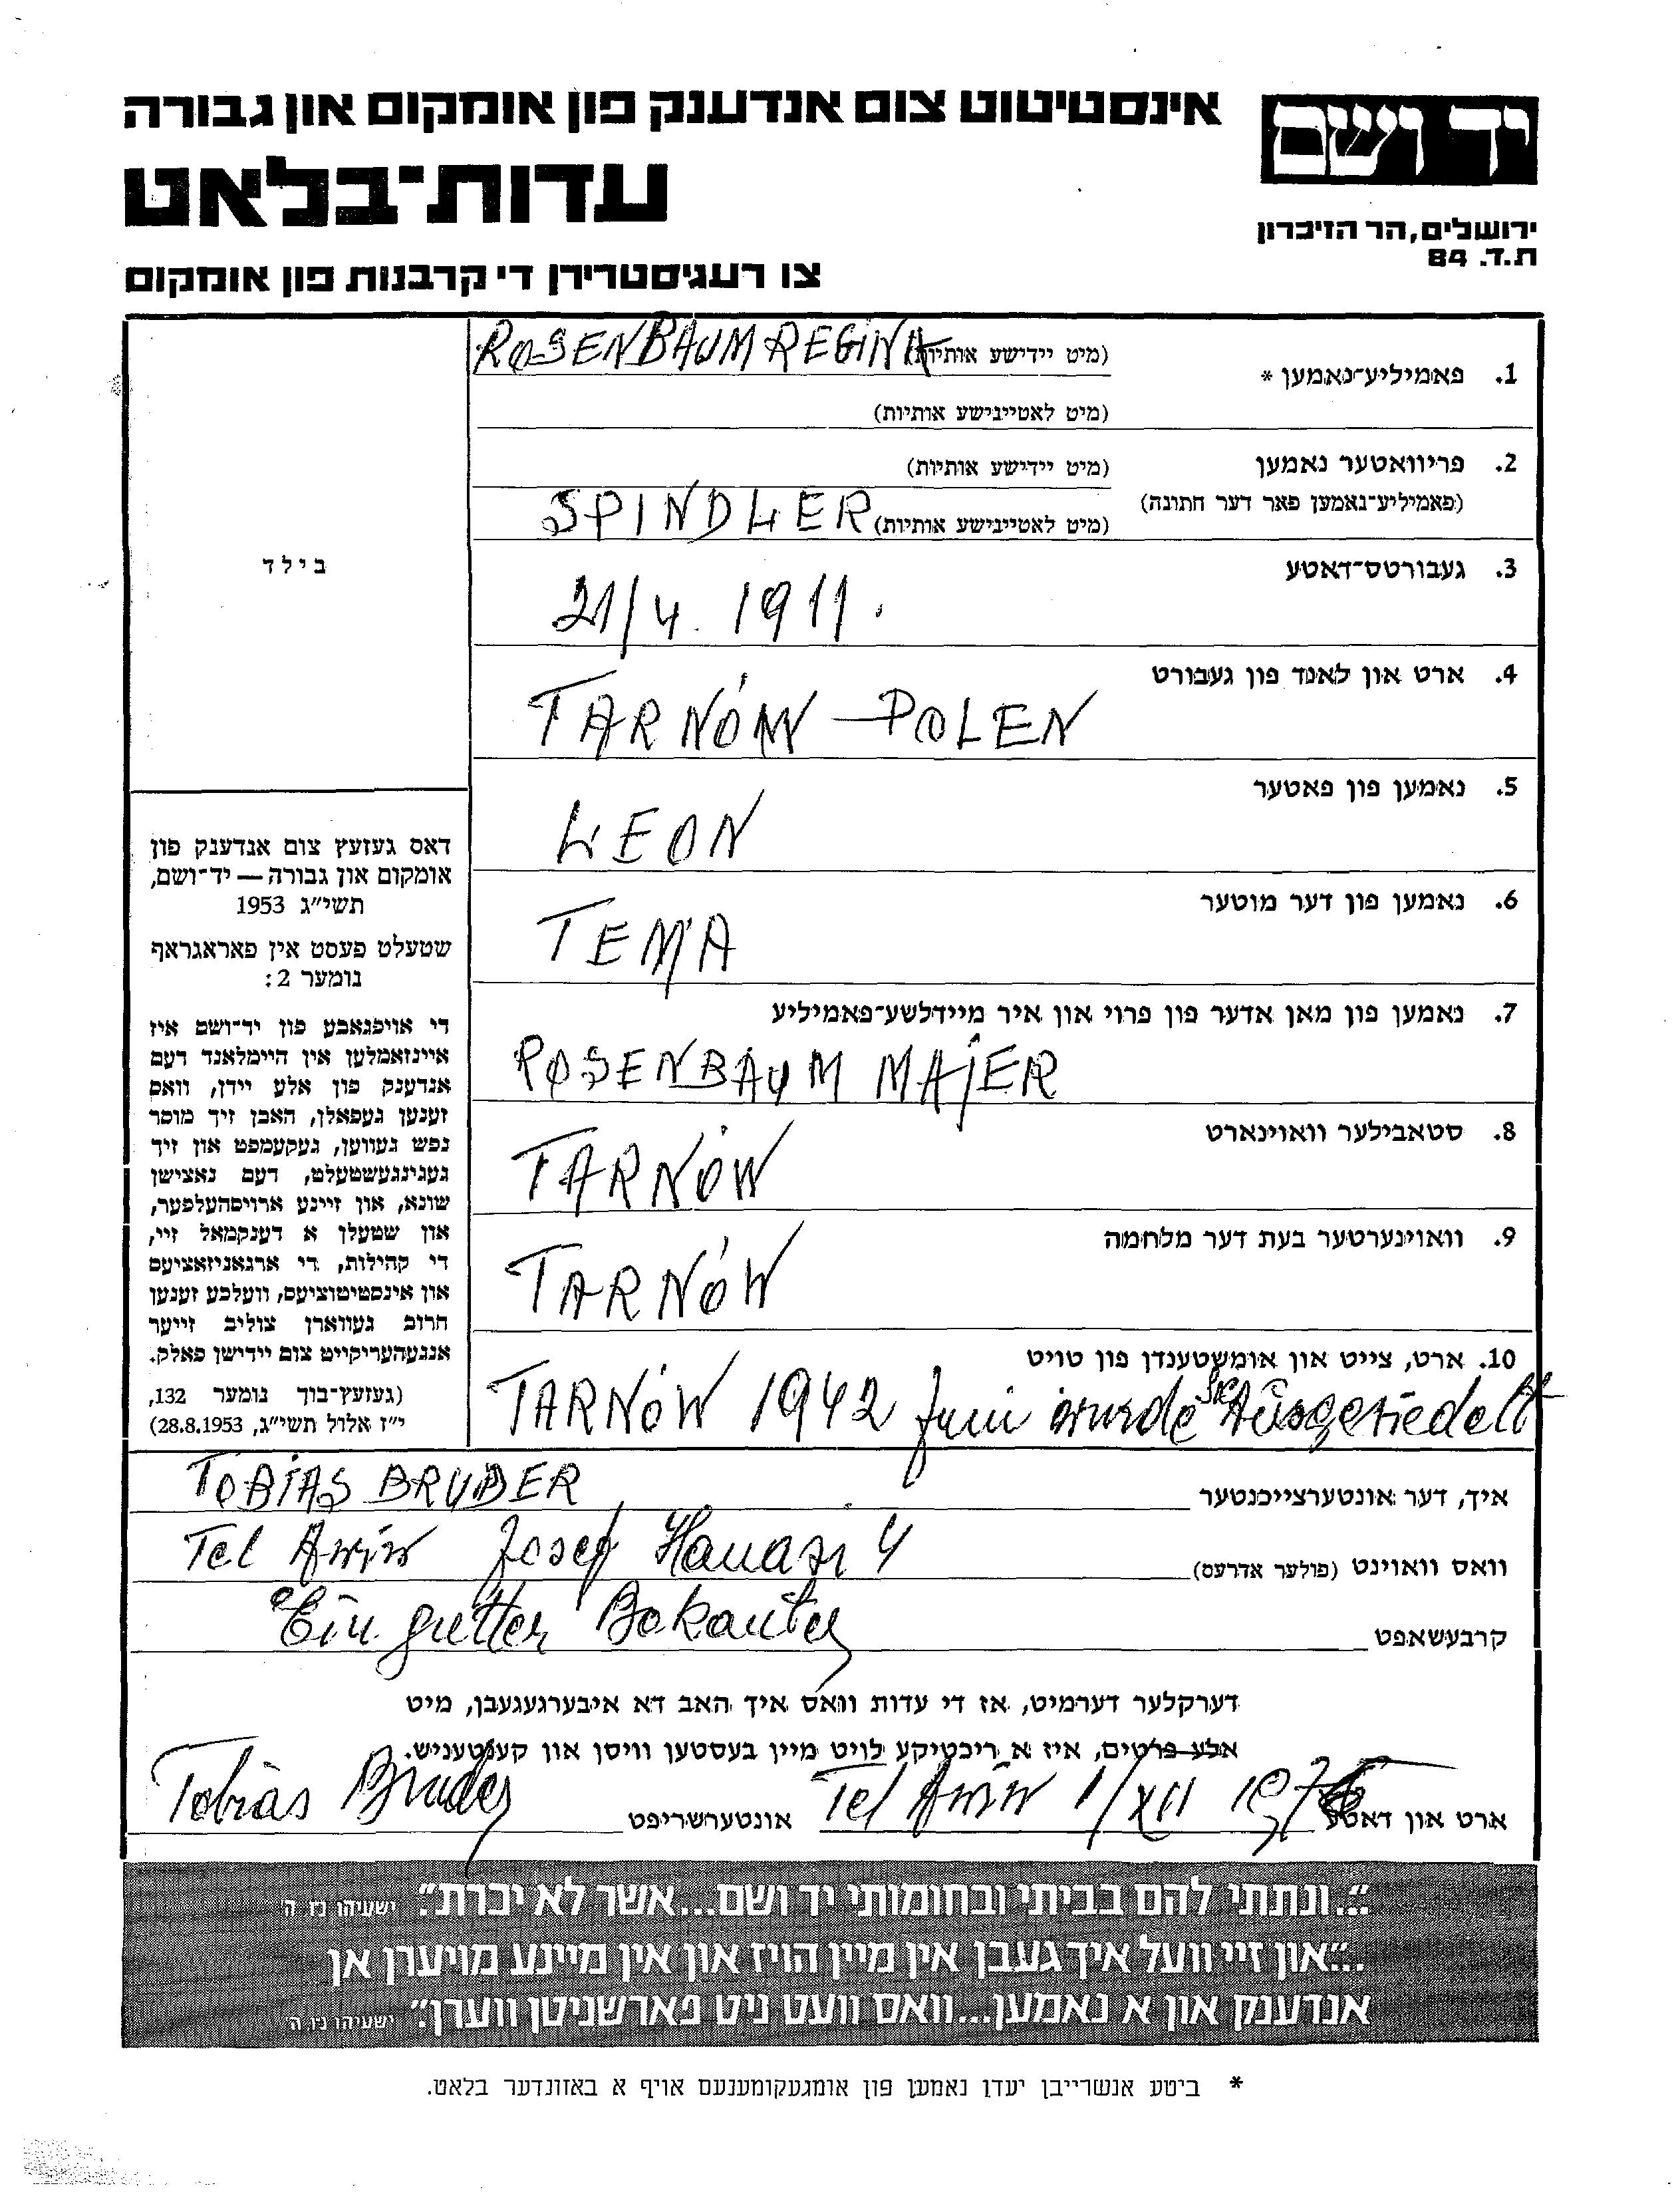 אינסטיטוט צום אנדענק פון אומקום און גבורה
יד ושם
עדות־בלאט
ירושלים, הר הזיכרון
ת.ד. 84
צו רעגיסטרירן די קרבנות פון אומקום
1. פאמיליע־נאמען *
(מיט יידישע אותיות) ROSENBAUM REGINA
(מיט לאטיינישע אותיות)
2. פריוואטער נאמען
(פאמיליע־נאמען פאר דער חתונה)
(מיט יידישע אותיות)
(מיט לאטיינישע אותיות) SPINDLER
בילד
3. געבורטס־דאטע
21/4. 1911.
4. ארט און לאנד פון געבורט
TARNÓW - POLEN
5. נאמען פון פאטער
LEON
6. נאמען פון דער מוטער
TEMA
7. נאמען פון מאן אדער פון פרוי און איר מיידלשע־פאמיליע
ROSENBAUM MAJER
8. סטאבילער וואוינארט
TARNÓW
9. וואוינערטער בעת דער מלחמה
TARNÓW
10. ארט, צייט און אומשטענדן פון טויט
TARNÓW 1942 Juni wurde sie Ausgesiedelt
דאס געזעץ צום אנדענק פון
אומקום און גבורה — יד־ושם,
תשי״ג 1953
שטעלט פעסט אין פאראגראף
נומער 2:
די אויפגאבע פון יד־ושם איז
איינזאמלען אין היימלאנד דעם
אנדענק פון אלע יידן, וואס
זענען געפאלן, האבן זיך מוסר
נפש געווען, געקעמפט און זיך
געגינגעשטעלט, דעם נאצישן
שונא, און זיינע ארויסהעלפער,
און שטעלן א דענקמאל זיי,
די קהילות, די ארגאניזאציעס
און אינסטיטוציעס, וועלכע זענען
חרוב געווארן צוליב זייער
אנגעהעריקייט צום יידישן פאלק.
(געזעץ־בוך נומער 132,
י״ז אלול תשי״ג, 28.8.1953)
איך, דער אונטערצייכנטער TOBIAS BRUDER
וואס וואוינט (פולער אדרעס) Tel Awiw Josef Hanasi 4
קרבעשאפט Ein gutter Bekanter
דערקלער דערמיט, אז די עדות וואס איך האב דא איבערגעגעבן, מיט
אלע פרטים, איז א ריכטיקע לויט מיין בעסטען וויסן און קענטעניש.
ארט און דאטע Tel Awiw 1/XII אונטערשריפט Tobias Bruder
״...ונתתי להם בביתי ובחומותי יד ושם...אשר לא יכרת״. ישעיהו נו ה
...״און זיי וועל איך געבן אין מיין הויז און אין מיינע מויערן אן
אנדענק און א נאמען...וואס וועט ניט פארשניטן ווערן״. ישעיהו נו ה
* ביטע אנשרייבן יעדן נאמען פון אומגעקומענעם אויף א באזונדער בלאט.